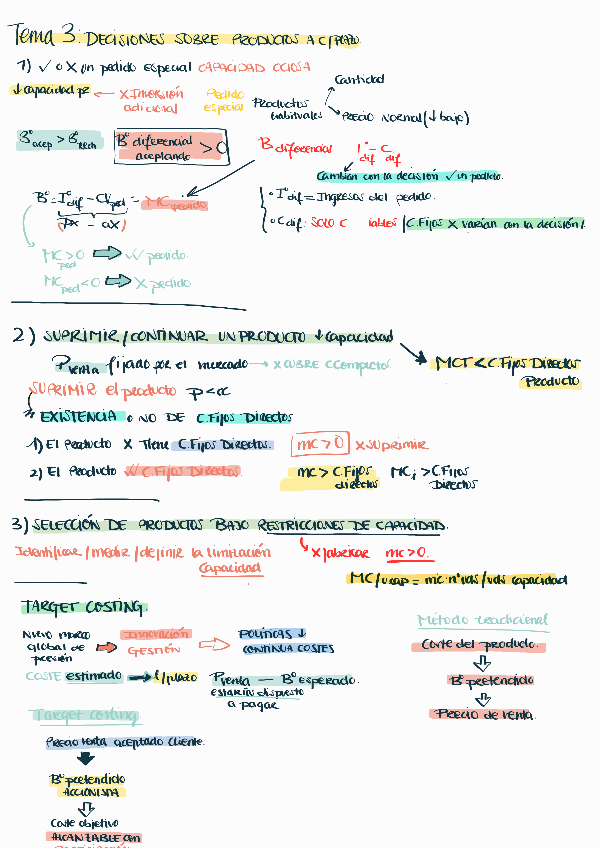 Tema 3: DECISIONES SOBRE PRODUCTOS A C/PLAZO.
1) ✓ o X un pedido especial CAPACIDAD OCIOSA
↓ capacidad pz ← X Inversión adicional
Pedido especial
Productos habituales
Cantidad
Precio Normal (↓ bajo)
Bº acep > Bº rech
Bº diferencial aceptando > 0
B diferencial Iº dif - C dif
Cambian con la decisión ✓ un pedido.
Bº = Iº dif - CV ped = MC pedido
(px - cx)
• Iº dif = Ingresos del pedido.
• C dif: SOLO C iables / C.Fijos X varían con la decisión.
MC ped > 0 ⇒ ✓✓ pedido.
MC ped < 0 ⇒ X pedido
2) SUPRIMIR / CONTINUAR UN PRODUCTO ↓ capacidad
P venta fijado por el mercado → X CUBRE C Compactos.
MCT < C.Fijos Directos Producto
SUPRIMIR el producto P < cc
→ EXISTENCIA o NO DE C.Fijos DIRECTOS
1) El Producto X Tiene C.Fijos Directos. mc > 0 X SUPRIMIR
2) El Producto ✓✓ C.Fijos Directos. mc > C.Fijos directos MCi > C.Fijos Directos
3) SELECCIÓN DE PRODUCTOS BAJO RESTRICCIONES DE CAPACIDAD.
Identificar / medir / definir la limitación Capacidad
X fabricar mc > 0.
MC/u.cap = mc · nº uds / uds capacidad
TARGET COSTING.
Nuevo marco global de presión ⇒ Innovación GESTIÓN ⇒ POLÍTICAS ↓ CONTINUA COSTES
COSTE estimado → l/plazo
P venta — Bº esperado.
estarías dispuesto a pagar
Método tradicional
Coste del producto.
Bº pretendido
Precio de venta.
Target costing
Precio venta aceptado cliente.
Bº pretendido
ACCIONISTA
Coste objetivo
ALCANZABLE con